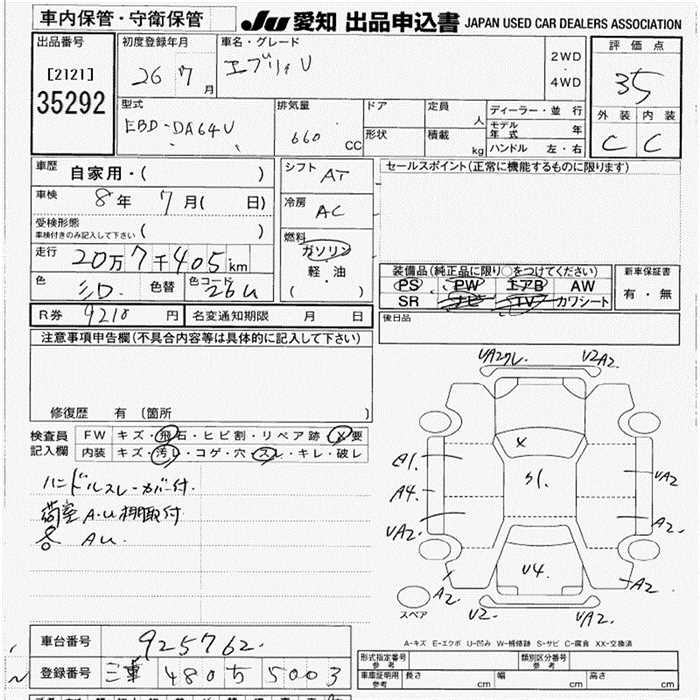 車内保管・守衛保管
JU 愛知 出品申込書 JAPAN USED CAR DEALERS ASSOCIATION
出品番号
[2121]
35292
初度登録年月
26 7 月
車名・グレード
エブリィ V
2WD
・
4WD
評価点
3.5
外装 内装
C C
型式
EBD-DA64V
排気量
660 CC
ドア
形状
定員 人
積載 kg
ディーラー・並行
モデル年式 年
ハンドル 左・右
車歴 自家用・( )
車検 8 年 7 月( 日)
受検形態
車検付きのみ記入して下さい ( )
走行 20万7千405km
色 シロ 色替 色コード 26U
R券 9210 円 名変通知期限 月 日
シフト AT
冷房 AC
燃料
ガソリン
軽・油
( )
セールスポイント(正常に機能するものに限ります)
装備品(純正品に限り○をつけてください)
PS PW エアB AW
SR ナビ TV カワシート
新車保証書
有・無
後日品
注意事項申告欄(不具合内容等は具体的に記入して下さい)
修復歴 有(箇所 )
検査員記入欄
FW キズ・飛石・ヒビ割・リペア跡・X要
内装 キズ・汚レ・コゲ・穴・スレ・キレ・破レ
ハンドルスレ・カバー付.
荷室A.U棚取付
AU.
UA2 U2A2
X
S1.
A1.
A4.
UA2
UA2
A2
A2
U4.
A2
U2
UA2.
スペア
A-キズ E-エクボ U-凹み W-補修跡 S-サビ C-腐食 XX-交換済
車台番号 925762.
登録番号 三重 480 ち 5003
形式指定番号 参考
類別区分番号 参考
車庫証明用 参考 長さ 幅 高さ